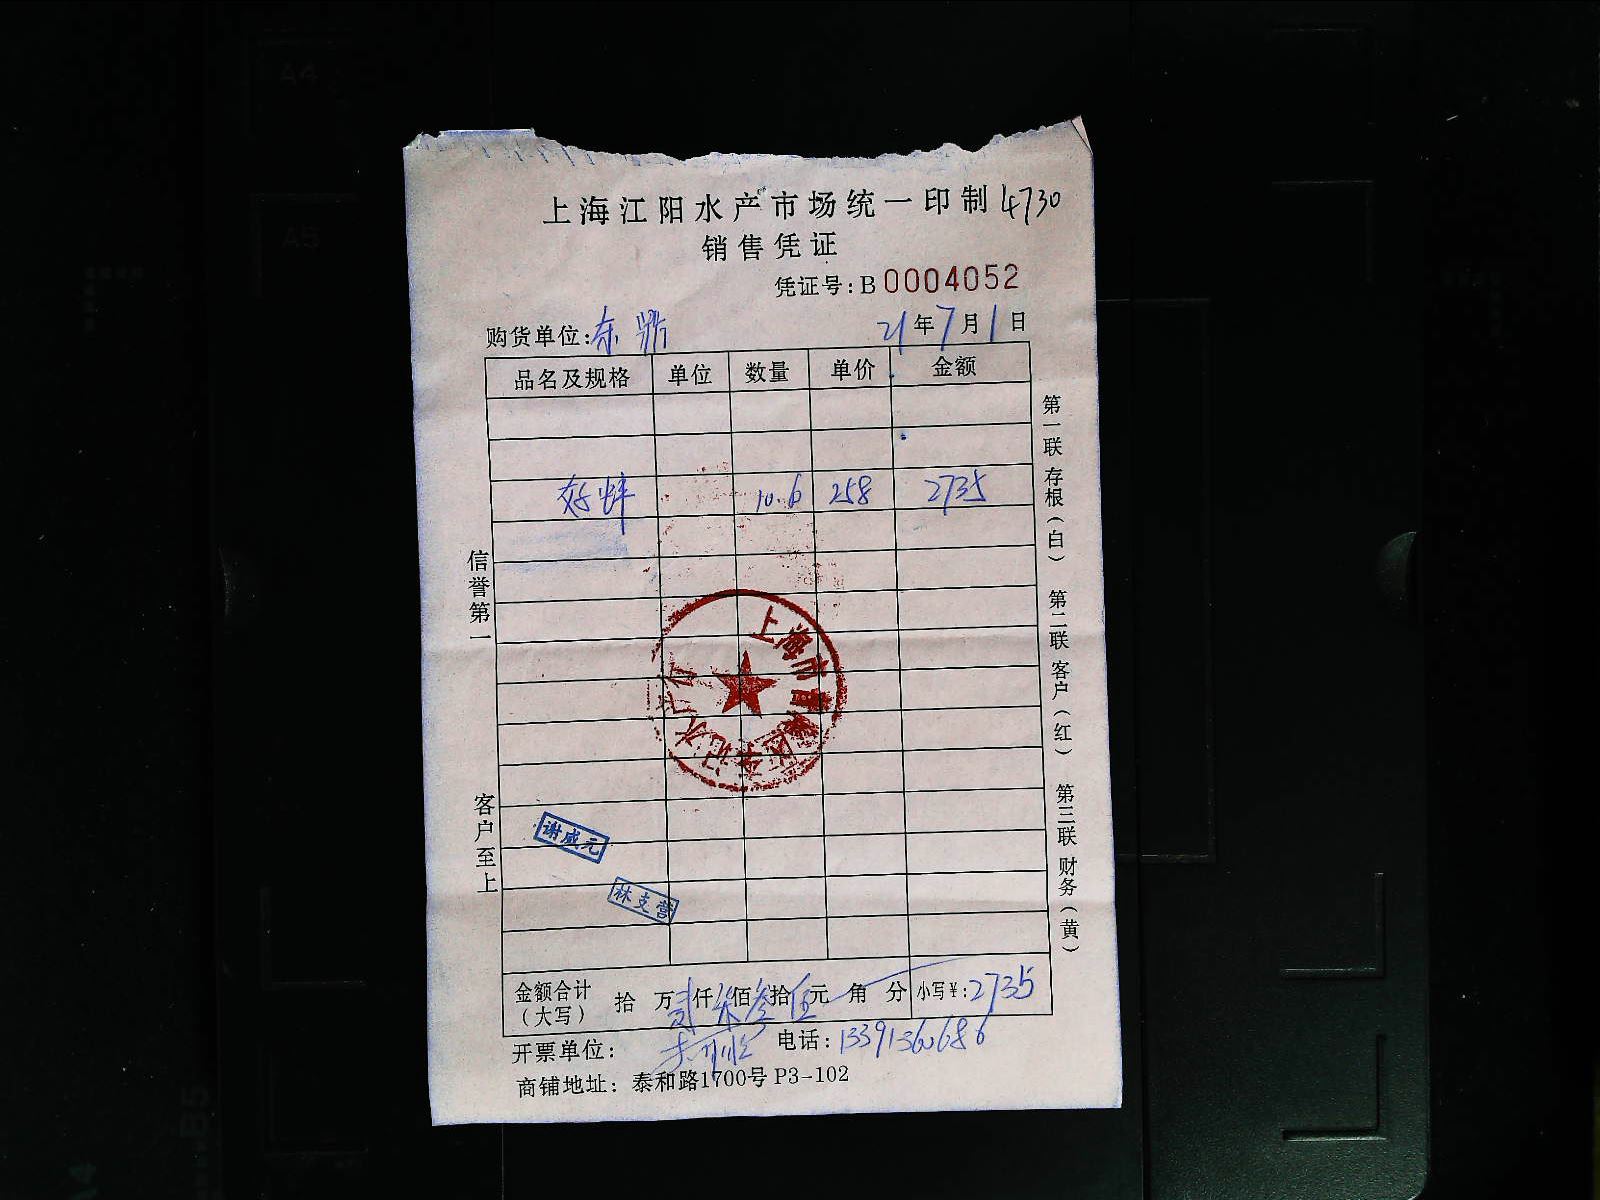 上海江阳水产市场统一印制 4730
销售凭证
凭证号:B0004052
购货单位:东 21年7月1日
品名及规格 单位 数量 单价 金额
10.6 258 2735
信誉第一
客户至上
第一联 存根(白) 第二联 客户(红) 第三联 财务(黄)
上海市
水产行
谢成元
林支营
金额合计(大写) 拾 万 贰 仟 柒 佰 叁 拾 伍 元 角 分 小写¥:2735
开票单位: 电话:13391360686
商铺地址: 泰和路1700号 P3-102
A4
A5
B5
A4